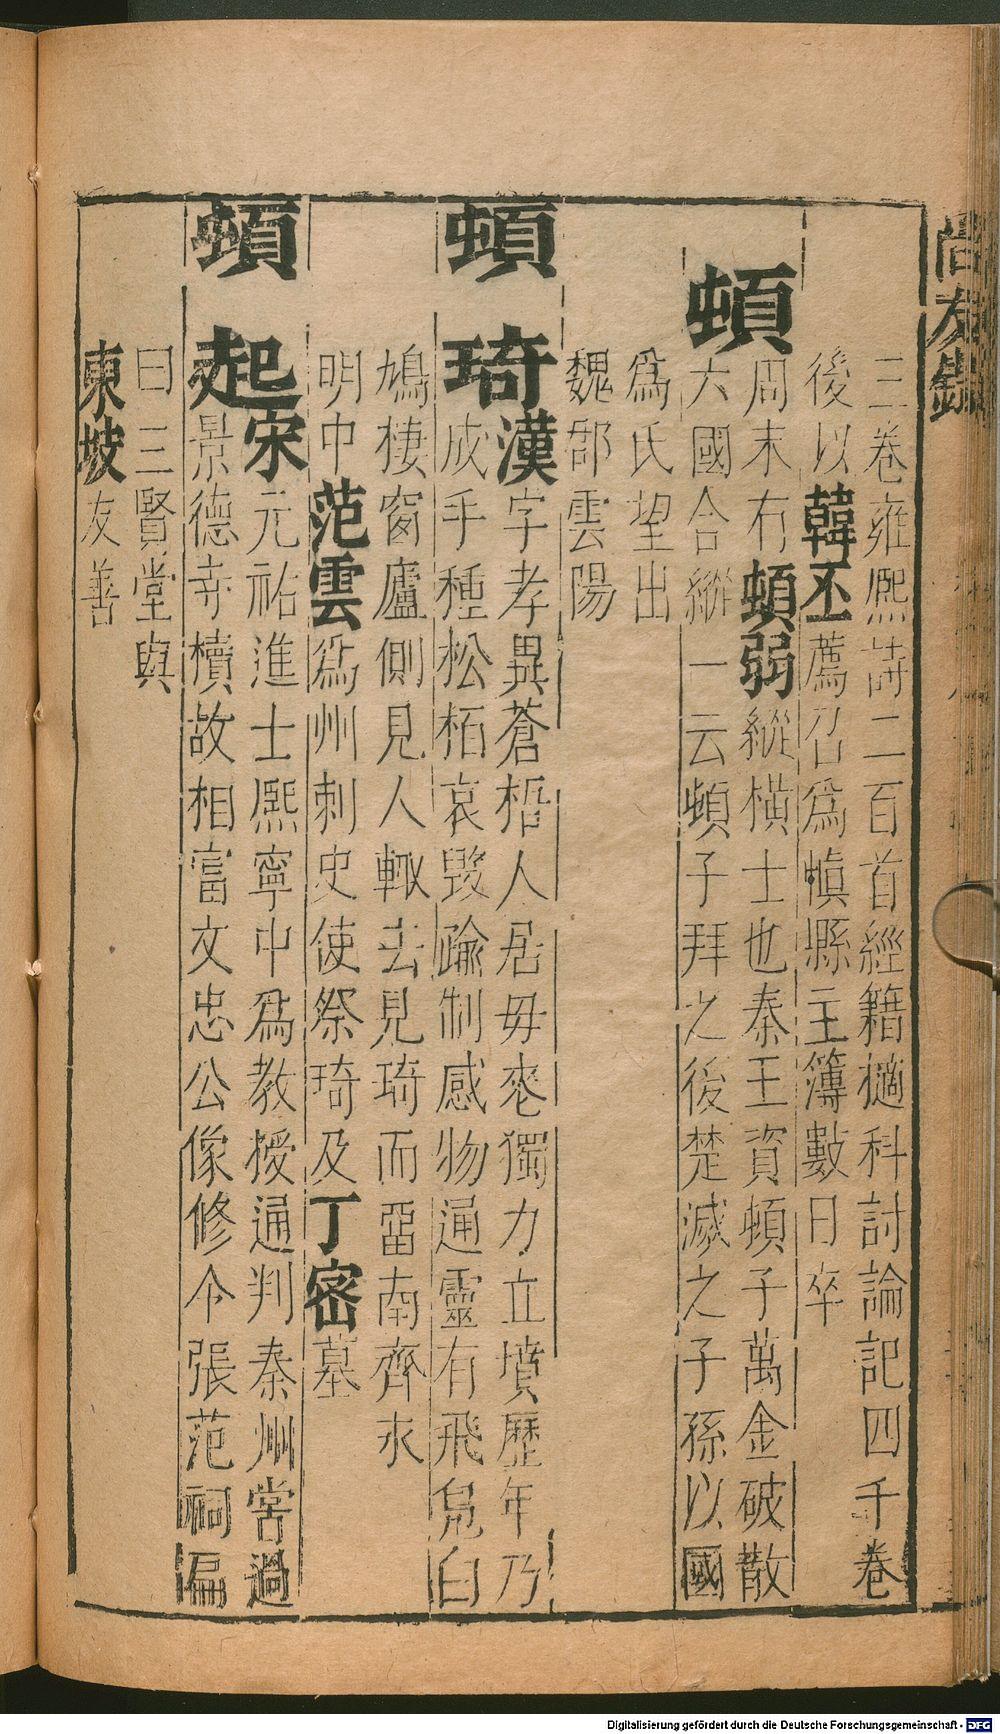 尚友錄
三卷雍熙詩二百首經籍擿科討論記四千卷
後以韓丕薦召爲慎縣主簿數日卒
頓
周末有頓弱縱橫士也秦王資頓子萬金破散
六國合縱一云頓子拜之後楚滅之子孫以國
爲氏望出
魏郡雲陽
頓琦
漢字孝異蒼梧人居毋喪獨力立墳歷年乃
成手種松栢哀毀踰制感物通靈有飛鳧白
鳩棲窗廬側見人輙去見琦而畱南齊永
明中范雲爲州刺史使祭琦及丁密墓
頓起
宋元祐進士熙寧中爲教授通判秦州嘗過
景德寺櫝故相富文忠公像修令張范祠扁
曰三賢堂與
東坡友善
Digitalisierung gefördert durch die Deutsche Forschungsgemeinschaft - DFG